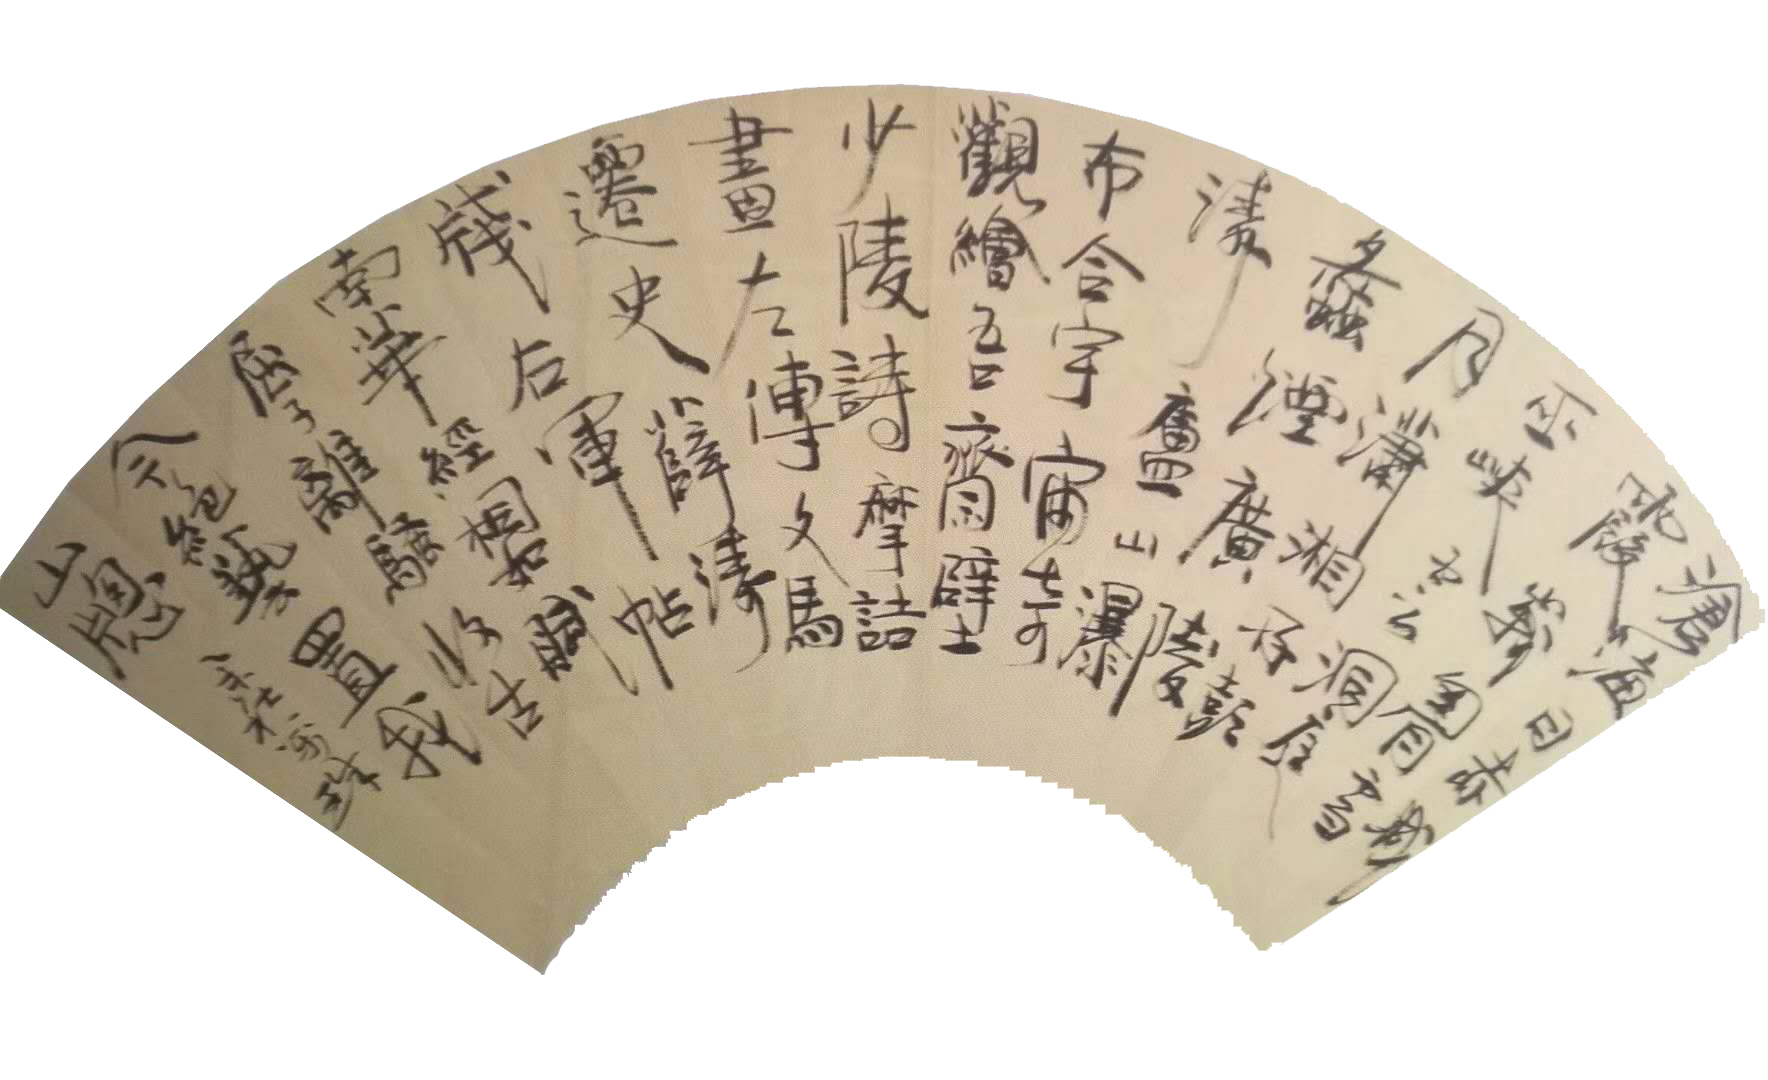 滄海日赤城
霞峨眉雪
巫峽雲洞庭
月瀟湘雨彭
蠡煙廣陵
濤廬山瀑
布合宇宙奇
觀繪吾齋壁
少陵詩摩詰
畫左傳文馬
遷史薛濤
箋右軍帖
南華經相如賦
屈子離騷收古
今絕藝置我
山窗